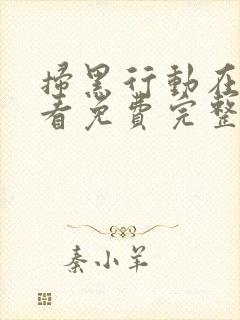 掃黑行動在
看免費完整
秦小羊